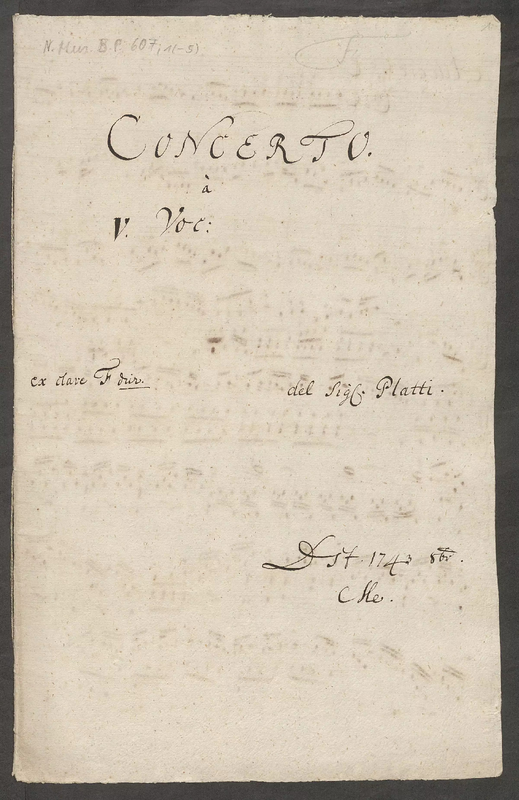 N. Mus. B.P. 607, 1(-5)
CONCERTO.
à
V. Voc:
ex clave F dur.
del Sigl: Platti.
1743 8br.